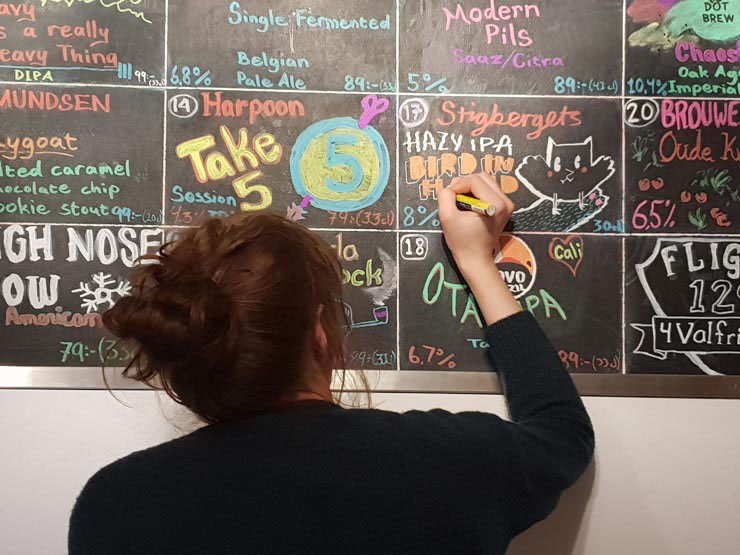 s a really
eavy Thing
DIPA
99:-
Single Fermented
Belgian
Pale Ale
6,8%
89:-(33cl)
Modern
Pils
Saaz/Citra
5%
89:-(43cl)
DOT
BREW
Chaos
Oak Ag
10,4% Imperial
MUNDSEN
lted caramel
ocolate chip
ookie stout 99:-
14 Harpoon
Take
5
5
Session
79:-(33cl)
17 Stigbergets
HAZY IPA
BIRD IN
8%
30cl
20 BROUWE
Oude K
6,5%
GH NOSE
OW
American
79:-(33
ock
99:-(33cl)
18
Cali
OTA PA
6,7%
89:-(33cl)
FLIG
12
4 Valfri